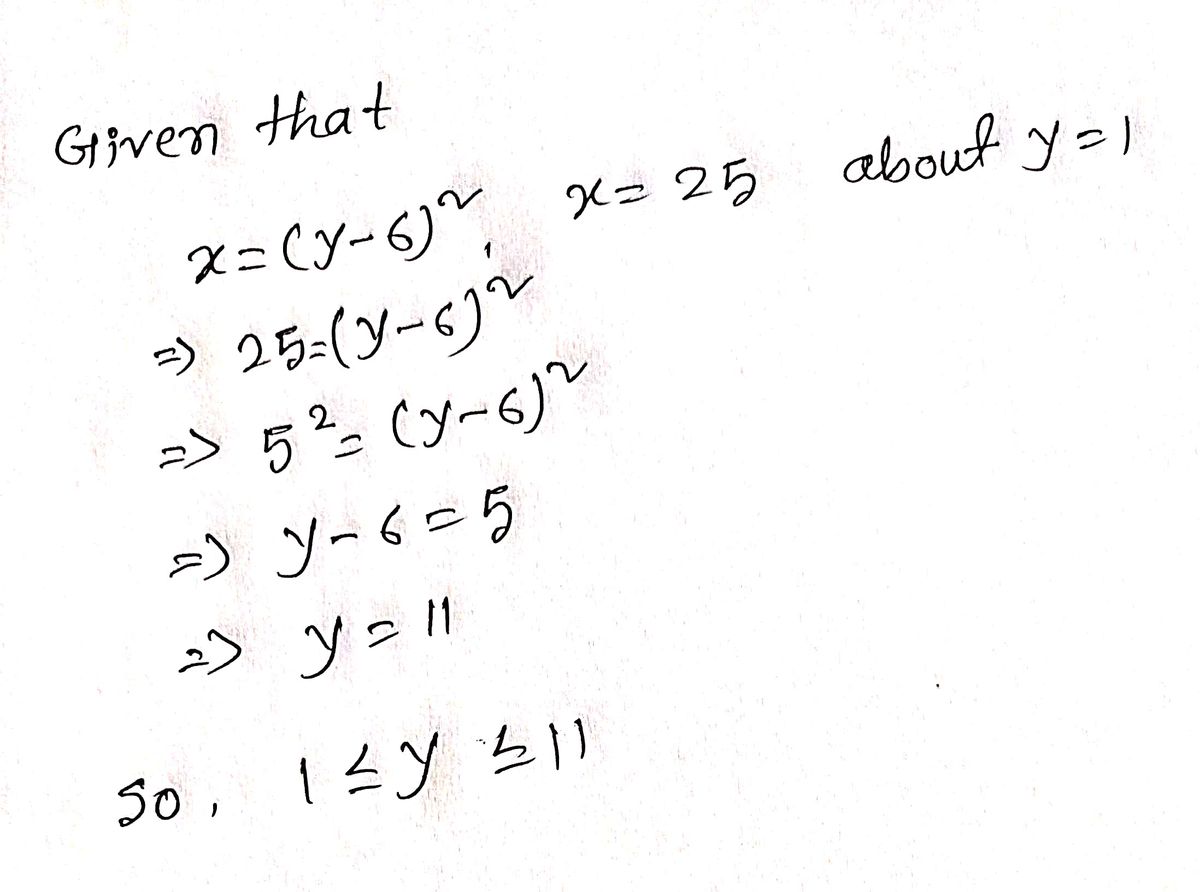 Given that
x=(y-6)², x=25 about y=1
=> 25=(y-6)²
=> 5²=(y-6)²
=> y-6=5
=> y=11
So, 1≤y≤11